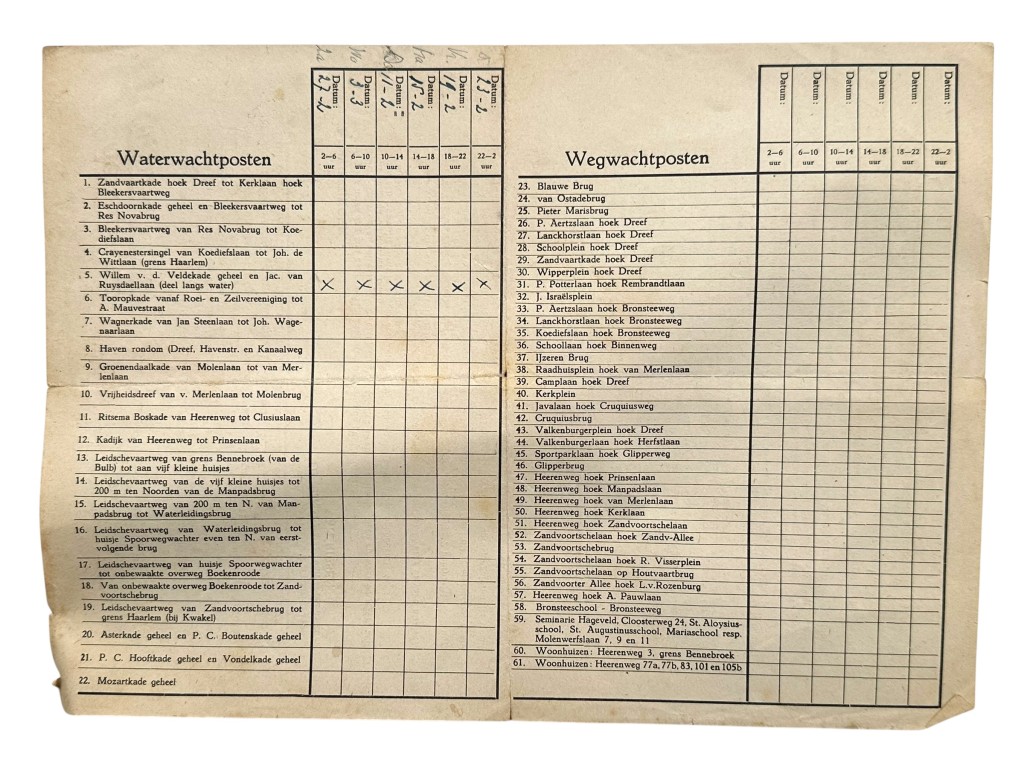 Za Wo Do Za Vr
Datum: 27-2
Datum: 3-3
Datum: 11-2
Datum: 15-2
Datum: 19-2
Datum: 23-2
Waterwachtposten
2—6 uur
6—10 uur
10—14 uur
14—18 uur
18—22 uur
22—2 uur
1. Zandvaartkade hoek Dreef tot Kerklaan hoek
Bleekersvaartweg
2. Eschdoornkade geheel en Bleekersvaartweg tot
Res Novabrug
3. Bleekersvaartweg van Res Novabrug tot Koe-
diefslaan
4. Crayenestersingel van Koediefslaan tot Joh. de
Wittlaan (grens Haarlem)
5. Willem v. d. Veldekade geheel en Jac. van
Ruysdaellaan (deel langs water) X X X X X X
6. Tooropkade vanaf Roei- en Zeilvereeniging tot
A. Mauvestraat
7. Wagnerkade van Jan Steenlaan tot Joh. Wage-
naarlaan
8. Haven rondom (Dreef, Havenstr. en Kanaalweg
9. Groenendaalkade van Molenlaan tot van Mer-
lenlaan
10. Vrijheidsdreef van v. Merlenlaan tot Molenbrug
11. Ritsema Boskade van Heerenweg tot Clusiuslaan
12. Kadijk van Heerenweg tot Prinsenlaan
13. Leidschevaartweg van grens Bennebroek (van de
Bulb) tot aan vijf kleine huisjes
14. Leidschevaartweg van de vijf kleine huisjes tot
200 m ten Noorden van de Manpadsbrug
15. Leidschevaartweg van 200 m ten N. van Man-
padsbrug tot Waterleidingsbrug
16. Leidschevaartweg van Waterleidingsbrug tot
huisje Spoorwegwachter even ten N. van eerst-
volgende brug
17. Leidschevaartweg van huisje Spoorwegwachter
tot onbewaakte overweg Boekenroode
18. Van onbewaakte overweg Boekenroode tot Zand-
voortschebrug
19. Leidschevaartweg van Zandvoortschebrug tot
grens Haarlem (bij Kwakel)
20. Asterkade geheel en P. C. Boutenskade geheel
21. P. C. Hooftkade geheel en Vondelkade geheel
22. Mozartkade geheel
Datum:
Datum:
Datum:
Datum:
Datum:
Datum:
Wegwachtposten
2—6 uur
6—10 uur
10—14 uur
14—18 uur
18—22 uur
22—2 uur
23. Blauwe Brug
24. van Ostadebrug
25. Pieter Marisbrug
26. P. Aertzslaan hoek Dreef
27. Lanckhorstlaan hoek Dreef
28. Schoolplein hoek Dreef
29. Zandvaartkade hoek Dreef
30. Wipperplein hoek Dreef
31. P. Potterlaan hoek Rembrandtlaan
32. J. Israëlsplein
33. P. Aertzslaan hoek Bronsteeweg
34. Lanckhorstlaan hoek Bronsteeweg
35. Koediefslaan hoek Bronsteeweg
36. Schoollaan hoek Binnenweg
37. IJzeren Brug
38. Raadhuisplein hoek van Merlenlaan
39. Camplaan hoek Dreef
40. Kerkplein
41. Javalaan hoek Cruquiusweg
42. Cruquiusbrug
43. Valkenburgerplein hoek Dreef
44. Valkenburgerlaan hoek Herfstlaan
45. Sportparklaan hoek Glipperweg
46. Glipperbrug
47. Heerenweg hoek Prinsenlaan
48. Heerenweg hoek Manpadslaan
49. Heerenweg hoek van Merlenlaan
50. Heerenweg hoek Kerklaan
51. Heerenweg hoek Zandvoortschelaan
52. Zandvoortschelaan hoek Zandv-Allee
53. Zandvoortschebrug
54. Zandvoortschelaan hoek R. Visserplein
55. Zandvoortschelaan op Houtvaartbrug
56. Zandvoorter Allee hoek L.v.Rozenburg
57. Heerenweg hoek A. Pauwlaan
58. Bronsteeschool - Bronsteeweg
59. Seminarie Hageveld, Cloosterweg 24, St. Aloysius-
school, St. Augustinusschool, Mariaschool resp.
Molenwerfslaan 7, 9 en 11
60. Woonhuizen: Heerenweg 3, grens Bennebroek
61. Woonhuizen: Heerenweg 77a, 77b, 83, 101 en 105b